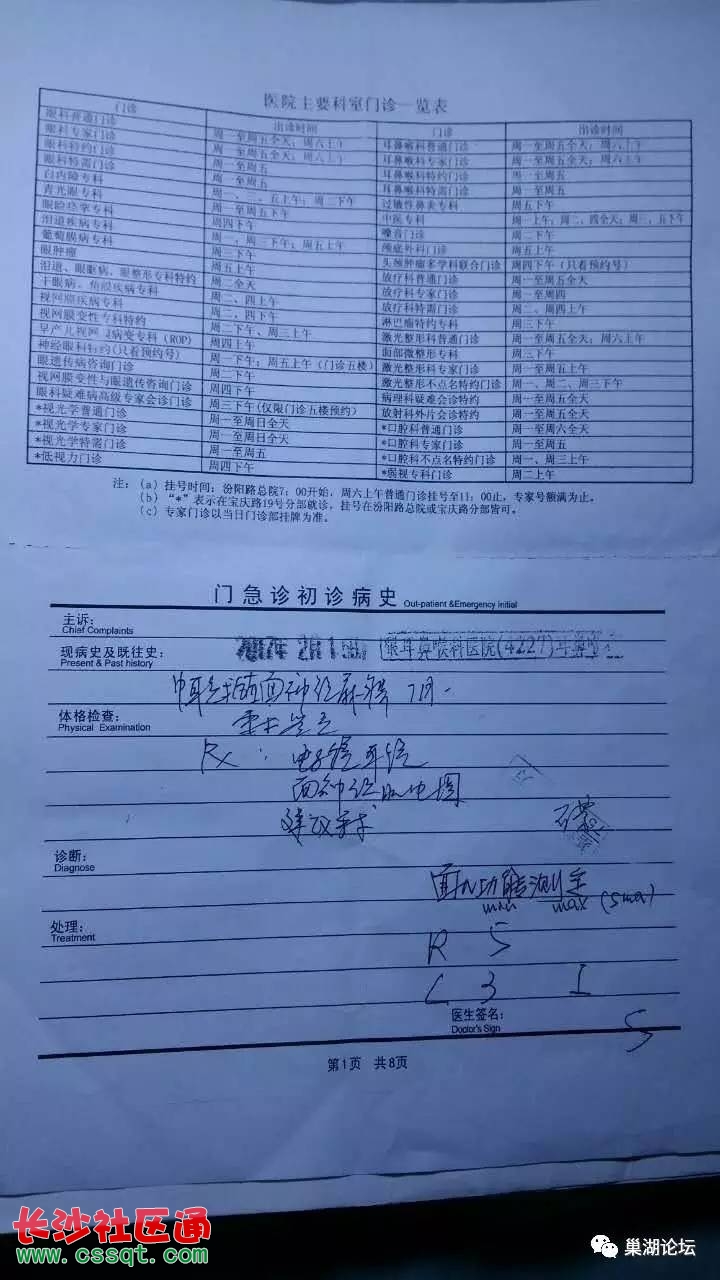 医院主要科室门诊一览表
门诊 出诊时间 门诊 出诊时间
眼科普通门诊 周一至周五全天；周六上午 耳鼻喉科普通门诊 周一至周五全天；周六上午
眼科专家门诊 周一至周五全天；周六上午 耳鼻喉科专家门诊 周一至周五全天；周六上午
眼科特约门诊 周一至周五 耳鼻喉科特约门诊 周一至周五
眼科特需门诊 周一至周五 耳鼻喉科特需门诊 周一至周五
白内障专科 周一、二、五上午；周二下午 过敏性鼻炎专科 周五下午
青光眼专科 周一至周五下午 中医专科 周一上午；周二、四全天；周三、五下午
眼睑痉挛专科 周四下午 嗓音门诊 周二下午
泪道疾病专科 周一、周三下午；周五上午 颅底外科门诊 周五上午
葡萄膜病专科 周三下午 头颈肿瘤多学科联合门诊 周四下午（只看预约号）
眼肿瘤 周五上午 放疗科普通门诊 周一至周五全天
泪道、眼眶病、眼整形专科特约 周二全天 放疗科专家门诊 周一至周四
干眼病、角膜疾病专科 周二、四上午 放疗科特需门诊 周二、周四上午
视网膜疾病专科 周二、四下午 淋巴瘤特约专科 周三下午
视网膜变性专科特约 周二下午、周三上午 激光整形科普通门诊 周一至周五全天；周六上午
早产儿视网 病变专科（ROP） 周四上午 面部微整形专科 周三下午
神经眼科特约(只看预约号) 周一下午；周五上午（门诊五楼） 激光整形科专家门诊 周一至周五上午
眼遗传病咨询门诊 周二下午 激光整形不点名特约门诊 周一、周二、周三下午
视网膜变性与眼遗传咨询门诊 周四下午 病理科疑难会诊特约 周一至周五全天
眼科疑难病高级专家会诊门诊 周三下午(仅限门诊五楼预约) 放射科外片会诊特约 周一至周五全天
*视光学普通门诊 周一至周日全天 *口腔科普通门诊 周一至周六全天
*视光学专家门诊 周一至周日全天 *口腔科专家门诊 周一至周五
*视光学特需门诊 周一至周五 *口腔科不点名特约门诊 周一、周三上午
*低视力门诊 周四下午 *弱视专科门诊 周二上午
注：（a）挂号时间：汾阳路总院7：00开始，周六上午普通门诊挂号至11：00止，专家号额满为止。
（b）“*”表示在宝庆路19号分部就诊，挂号在汾阳路总院或宝庆路分部皆可。
（c）专家门诊以当日门诊部挂牌为准。
门急诊初诊病史 Out-patient &Emergency Initial
主诉：
Chief Complaints
现病史及既往史： 眼耳鼻喉科医院(4227)耳鼻
Present & Past history
面神经麻痹
体格检查：
Physical Examination
Rx： 电子耳镜
面神经肌电图
建议手术
诊断：
Diagnose
面九功能测定
min max (5ma)
处理：
Treatment
R 5
L 3 I
医生签名：
Doptor's Sign
5
第1页 共8页
长沙社区通
www.cssqt.com
巢湖论坛